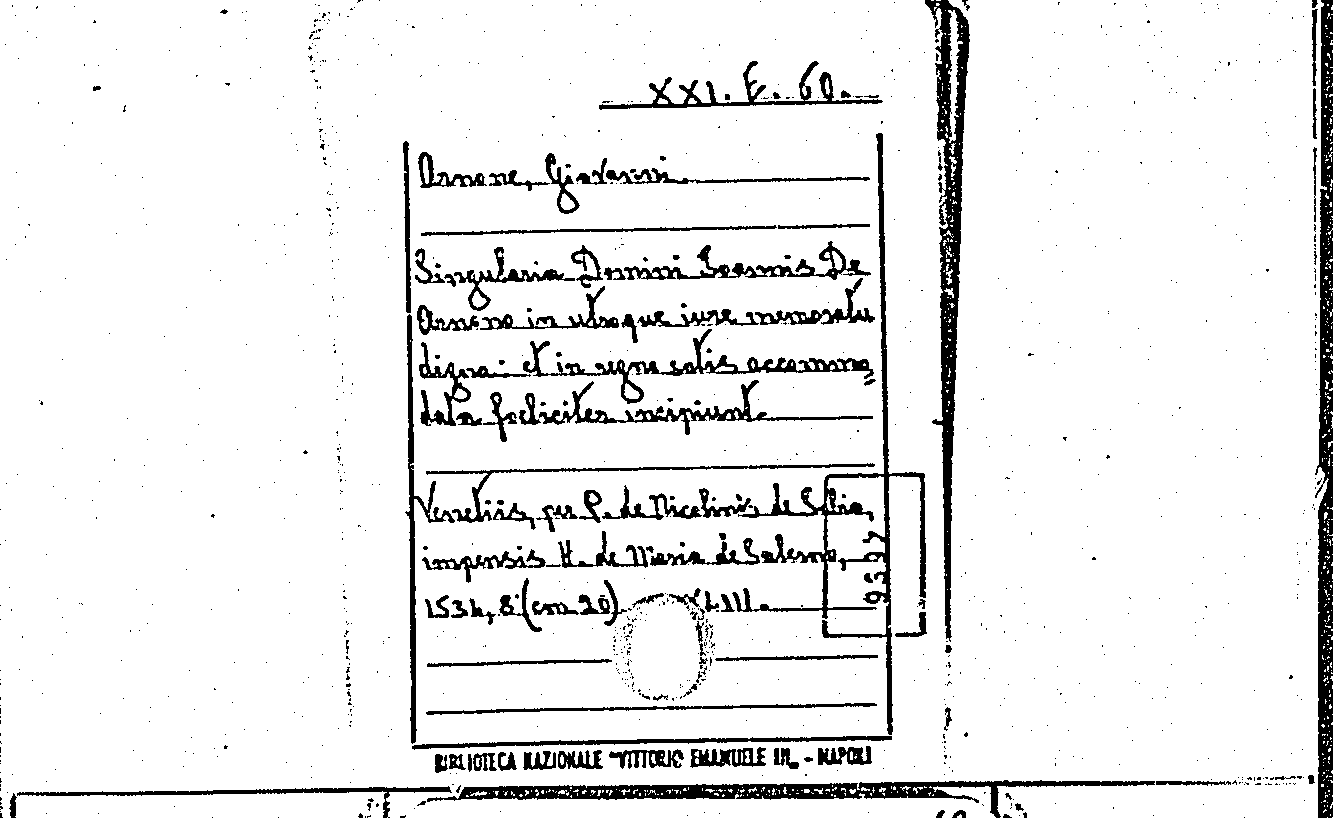 XXI. E. 60.
Arnone, Giovanni.
Singularia Domini Ioannis De
Arnono in utroque iure memoratu
digna: et in regno satis accommo=
data foeliciter incipiunt.
Venetiis, per P. de Nicolinis de Sabio,
impensis H. de Maria de Salerno,
1534, 8° (cm 20) XLIII.
BIBLIOTECA NAZIONALE "VITTORIO EMANUELE III" - NAPOLI